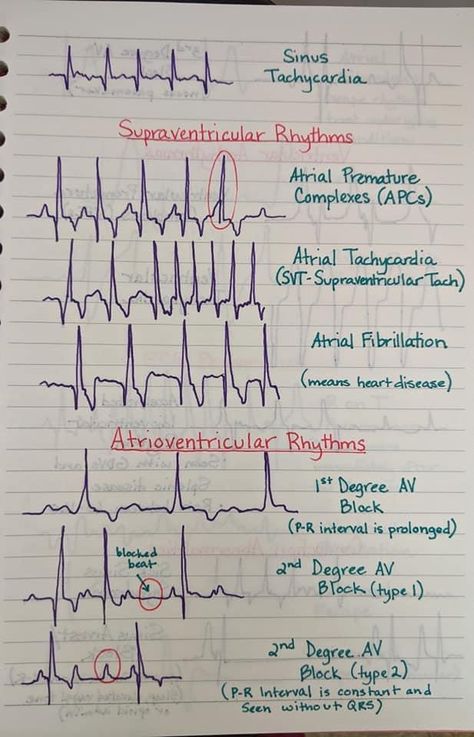 Sinus
Tachycardia
Supraventricular Rhythms
Atrial Premature
Complexes (APCs)
Atrial Tachycardia
(SVT-Supraventricular Tach)
Atrial Fibrillation
(means heart disease)
Atrioventricular Rhythms
1st Degree AV
Block
(P-R interval is prolonged)
blocked
beat
2nd Degree AV
Block (type 1)
2nd Degree AV
Block (type 2)
(P-R Interval is constant and
seen without QRS)